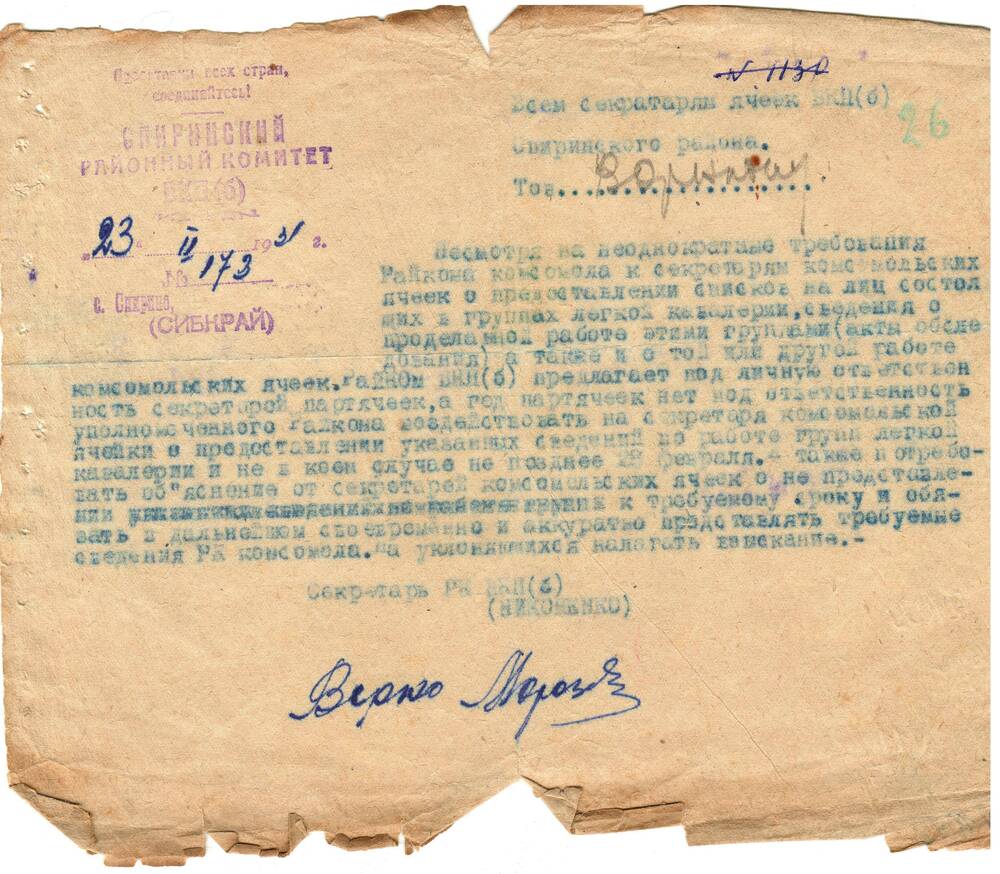 Пролетарии всех стран,
соединяйтесь!
СПИРИНСКИЙ
РАЙОННЫЙ КОМИТЕТ
ВКП(б)
„23" II 1931 г.
№ 173
с. Спирино,
(СИБКРАЙ)
N 1130
26
Всем секратарям ячеек ВКП(б)
Спиринского района.
Тов....................
Несмотря на неоднократные требования
Райкома комсомола к секретарям комсомольских
ячеек о предоставлении списков на лиц состоя
щих в группах легкой кавалерии,сведения о
проделанной работе этими группами(акты обсле
дования) а также и о той или другой работе
комсомольских ячеек.РайКОм ВКП(б) предлагает под личную ответствен
ность секреторей партячеек,а гед партячеек нет под ответственность
уполномоченного Райкома воздействовать на секретаря комсомольской
ячейки о предоставлении указанных сведений по работе групп легкой
кавалерии и не в коем случае не позднее 28 февраля.- также потребо-
вать об"яснение от секретарей комсомольских ячеек о не представле-
нии к требуемому сроку и обя-
зать в дальнейшем своевременно и аккуратно представлять требуемые
сведения РК комсомола.На уклоняющихся налагать взыскание.-
Секретарь РК ВКП(б)
(НИКОНЕНКО)
Верно